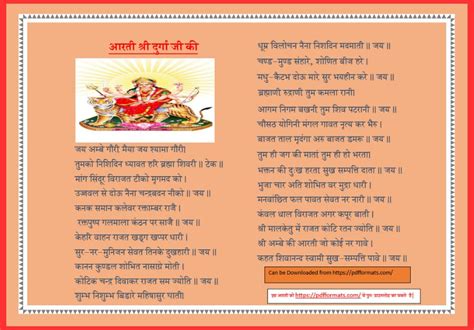 आरती श्री दुर्गा जी की
जय अम्बे गौरी मैया जय श्यामा गौरी।
तुमको निशिदिन ध्यावत हरि ब्रह्मा शिवरी ॥ टेक॥
मांग सिंदूर विराजत टीको मृगमद को।
उज्जवल से दोऊ नैना चन्द्रबदन नीको ॥ जय॥
कनक समान कलेवर रक्ताम्बर राजै।
रक्तपुष्प गलमाला कंठन पर साजै ॥ जय॥
केहरि वाहन राजत खड्ग खप्पर धारी।
सुर-नर-मुनिजन सेवत तिनके दुखहारी ॥ जय॥
कानन कुण्डल शोभित नासाग्रे मोती।
कोटिक चन्द्र दिवाकर राजत सम ज्योति ॥ जय॥
शुम्भ निशुम्भ बिडारे महिषासुर घाती।
धूम्र विलोचन नैना निशदिन मदमाती ॥ जय॥
चण्ड-मुण्ड संहारे, शोणित बीज हरे।
मधु-कैटभ दोऊ मारे सुर भयहीन करे॥ जय॥
ब्रह्माणी रुद्राणी तुम कमला रानी।
आगम निगम बखनी तुम शिव पटरानी ॥ जय॥
चौंसठ योगिनी मंगल गावत नृत्य कर भैरु।
बाजत ताल मृदंगा अरु बाजत डमरू ॥ जय॥
तुम ही जग की माता तुम ही हो भरता।
भक्तन की दु:ख हरता सुख सम्पत्ति दाता ॥ जय॥
भुजा चार अति शोभित वर मुद्रा धारी।
मनवांछित फल पावत सेवत नर नारी ॥ जय॥
कंचल थाल विराजत अगर कपूर बाती।
श्री मालकेतु में राजत कोटि रतन ज्योति ॥ जय॥
श्री अम्बे की आरती जो कोई नर गावे।
कहत शिवानन्द स्वामी सुख-सम्पत्ति पावे ॥ जय॥
Can be Downloaded from https://pdfformats.com/
इस आरती को https://pdfformats.com/ से पुनः डाउनलोड कर सकते है|